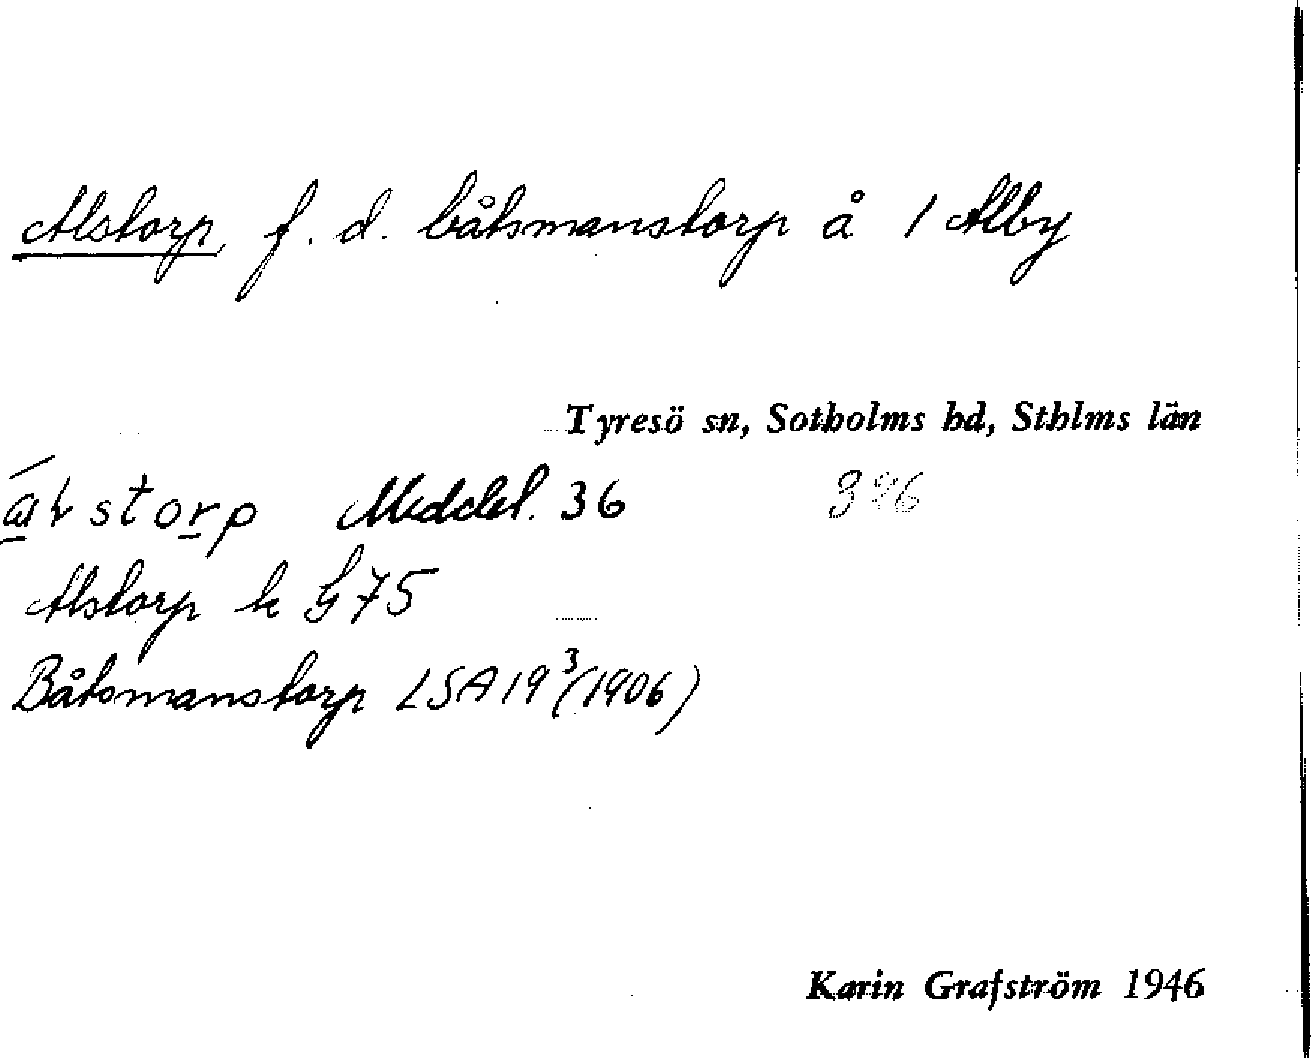 Alstorp, f. d. båtsmanstorp å 1 Alby
Tyresö sn, Sotholms hd, Sthlms län
storp Meddel. 36 396
Alstorp k G 75
Båtsmanstorp LSA 19³/(1906)
Karin Grafström 1946